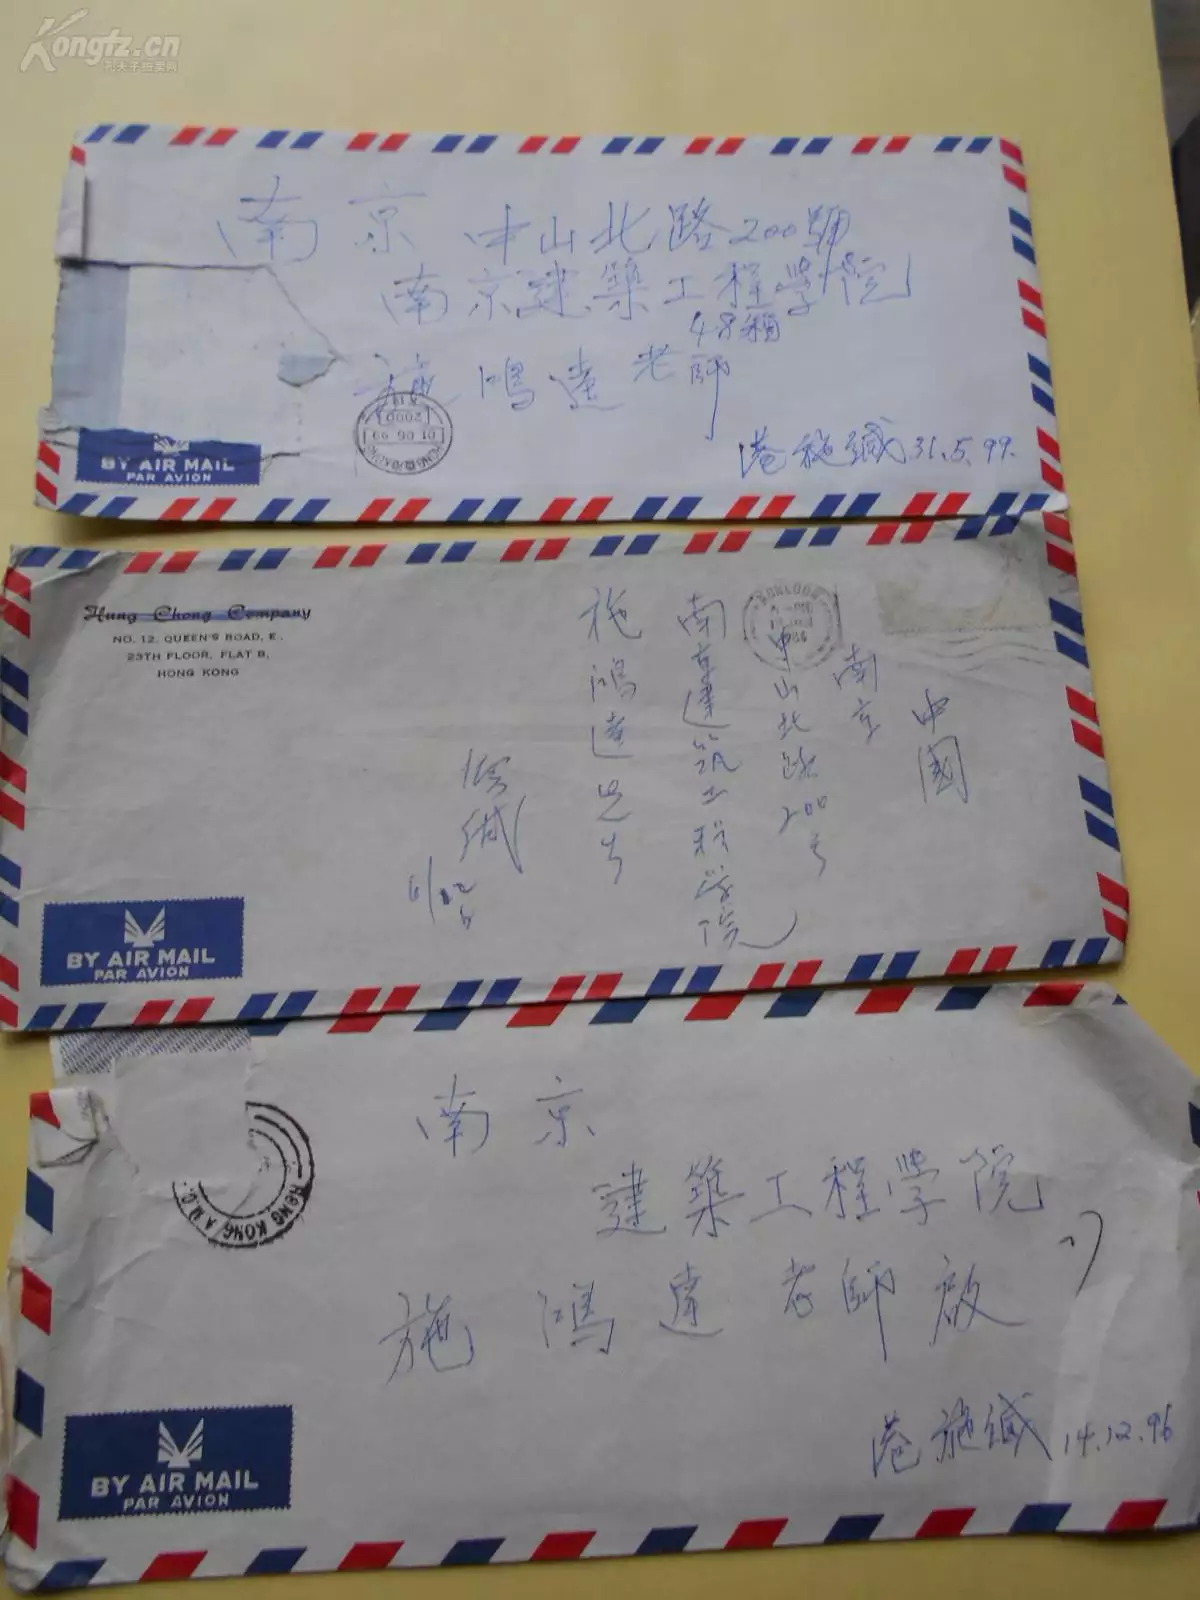 Kongfz.cn
孔夫子拍卖网
南京 中山北路200號
南京建築工程學院
48箱
施鴻達老師
港施缄 31.5.99.
HONG KONG
01 06 99
2000
BY AIR MAIL
PAR AVION
Hung Chong Company
NO. 12, QUEEN'S ROAD, E.,
23TH FLOOR, FLAT B,
HONG KONG
KOWLOON
中國
南京
中山北路200号
南京建筑工程学院
施鴻達先生
BY AIR MAIL
PAR AVION
HONG KONG A.M.C.
南京
建築工程學院
施鴻達老師啟
港施缄 14.12.96
BY AIR MAIL
PAR AVION